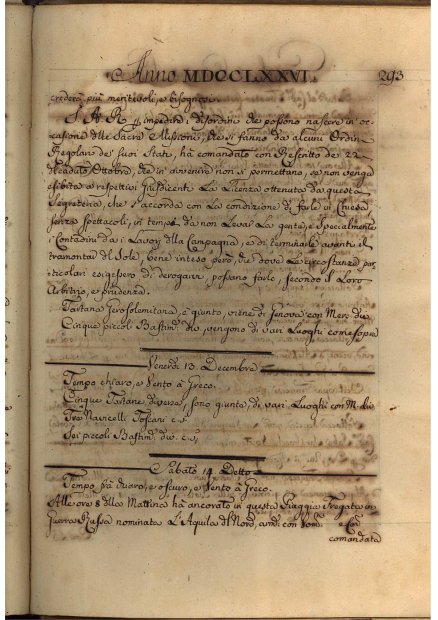 Anno MDCCLXXVI. 293
crederà più meritevoli, e bisognosi.
S. A. R. impedire i disordini che possono nascere in oc-
casione delle Sacre Missioni, che si fanno da alcuni Ordini
Regolari de' suoi Stati, ha comandato con Rescritto de 22
decaduto Ottobre, che in avvenire non si permettano, se non venga
esibita a' respettivi Giusdicenti la licenza ottenuta da questa
Segreteria, che s'accorda con la condizione di farle in Chiesa
senza spettacoli, in tempi da non levar la gente, e specialmente
i Contadini dai Lavori della Campagna, e di terminarle avanti il
tramontar del Sole, bene inteso però, che dove le circostanze par-
ticolari esigessero di derogarvi, possano farlo, secondo il loro
Arbitrio, e prudenza.
Tartana Gerosolimitana, è giunta, viene di Genova con Merc. div.
Cinque piccoli Bastim. div. vengono di vari Luoghi come sopra
Venerdì 13. Decembre
Tempo chiaro, e Vento à Greco.
Cinque Tartane diverse, sono giunte, di vari Luoghi con M. div.
Tre Navicelli Toscani c. s.
Sei piccoli Bastim. div. c. s.
Sabato 14. Detto
Tempo frà chiaro, e oscuro, e Vento à Greco.
Alle ore 8 della Mattina ha ancorato in questa Piaggia Fregata in
guerra Russa nominata L'Aquila del Nord, com
comandata